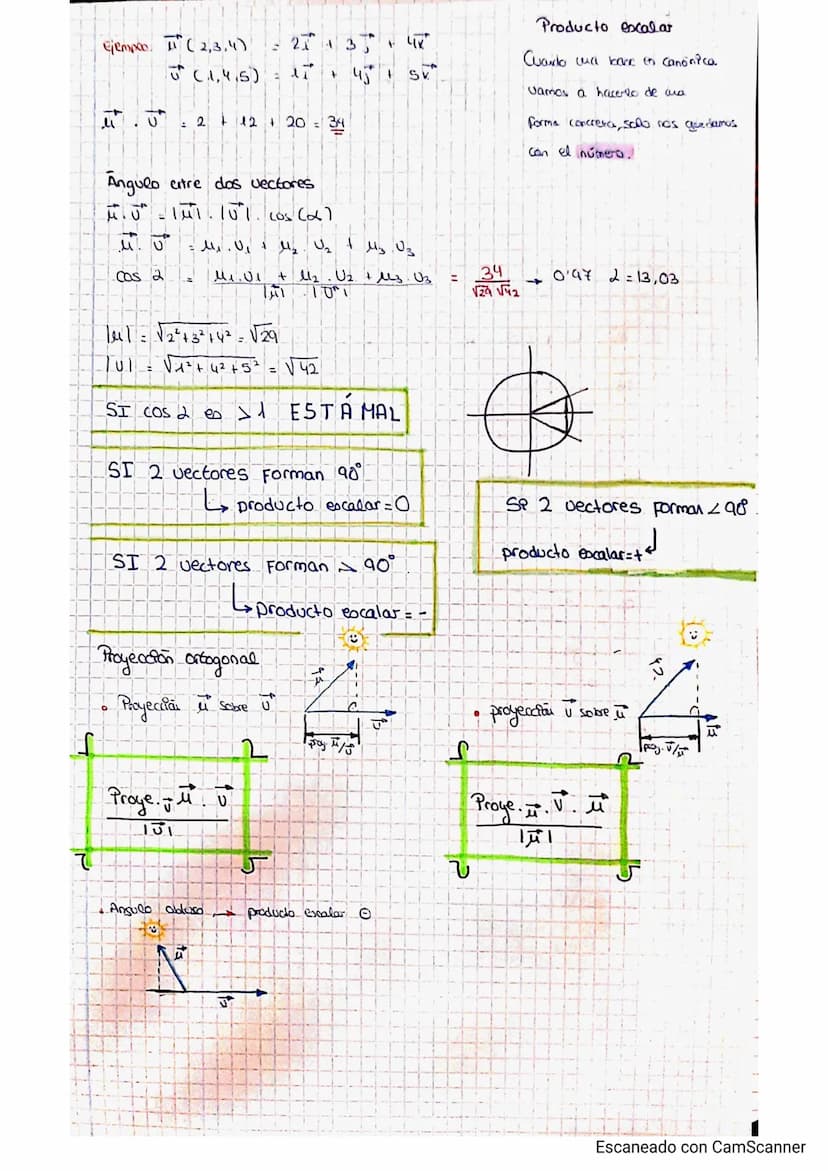 Producto escalar
Ejemplo: u⃗ (2,3,4) = 2i⃗ + 3j⃗ + 4k⃗
v⃗ (1,4,5) = 1i⃗ + 4j⃗ + 5k⃗
u⃗ . v⃗ = 2 + 12 + 20 = 34
Cuando una base en canónica
vamos a hacerlo de una
forma concreta, solo nos quedamos
con el número.
Ángulo entre dos vectores
u⃗ . v⃗ = |u⃗| . |v⃗| . cos(α)
u⃗ . v⃗ = u₁ . v₁ + u₂ . v₂ + u₃ . v₃
cos α = u₁ . v₁ + u₂ . v₂ + u₃ . v₃ / |u⃗| . |v⃗| = 34 / √29 √42 → 0'97 α = 13,03
|u| = √2²+3²+4² = √29
|v| = √1²+4²+5² = √42
SI cos α es >1 ESTÁ MAL
SI 2 vectores forman 90°
↳ producto escalar = 0
SI 2 vectores forman < 90°
producto escalar = +
SI 2 vectores forman > 90°
↳ producto escalar = -
Proyección ortogonal
• Proyección u⃗ sobre v⃗
u⃗
v⃗
proy. u⃗/v⃗
• proyección v⃗ sobre u⃗
v⃗
u⃗
proy. v⃗/u⃗
Proye. v⃗ u⃗ . v⃗
|v⃗|
Proye. u⃗ . v⃗ . u⃗
|u⃗|
• Angulo obtuso → producto escalar ⊖
u⃗
v⃗
Escaneado con CamScanner